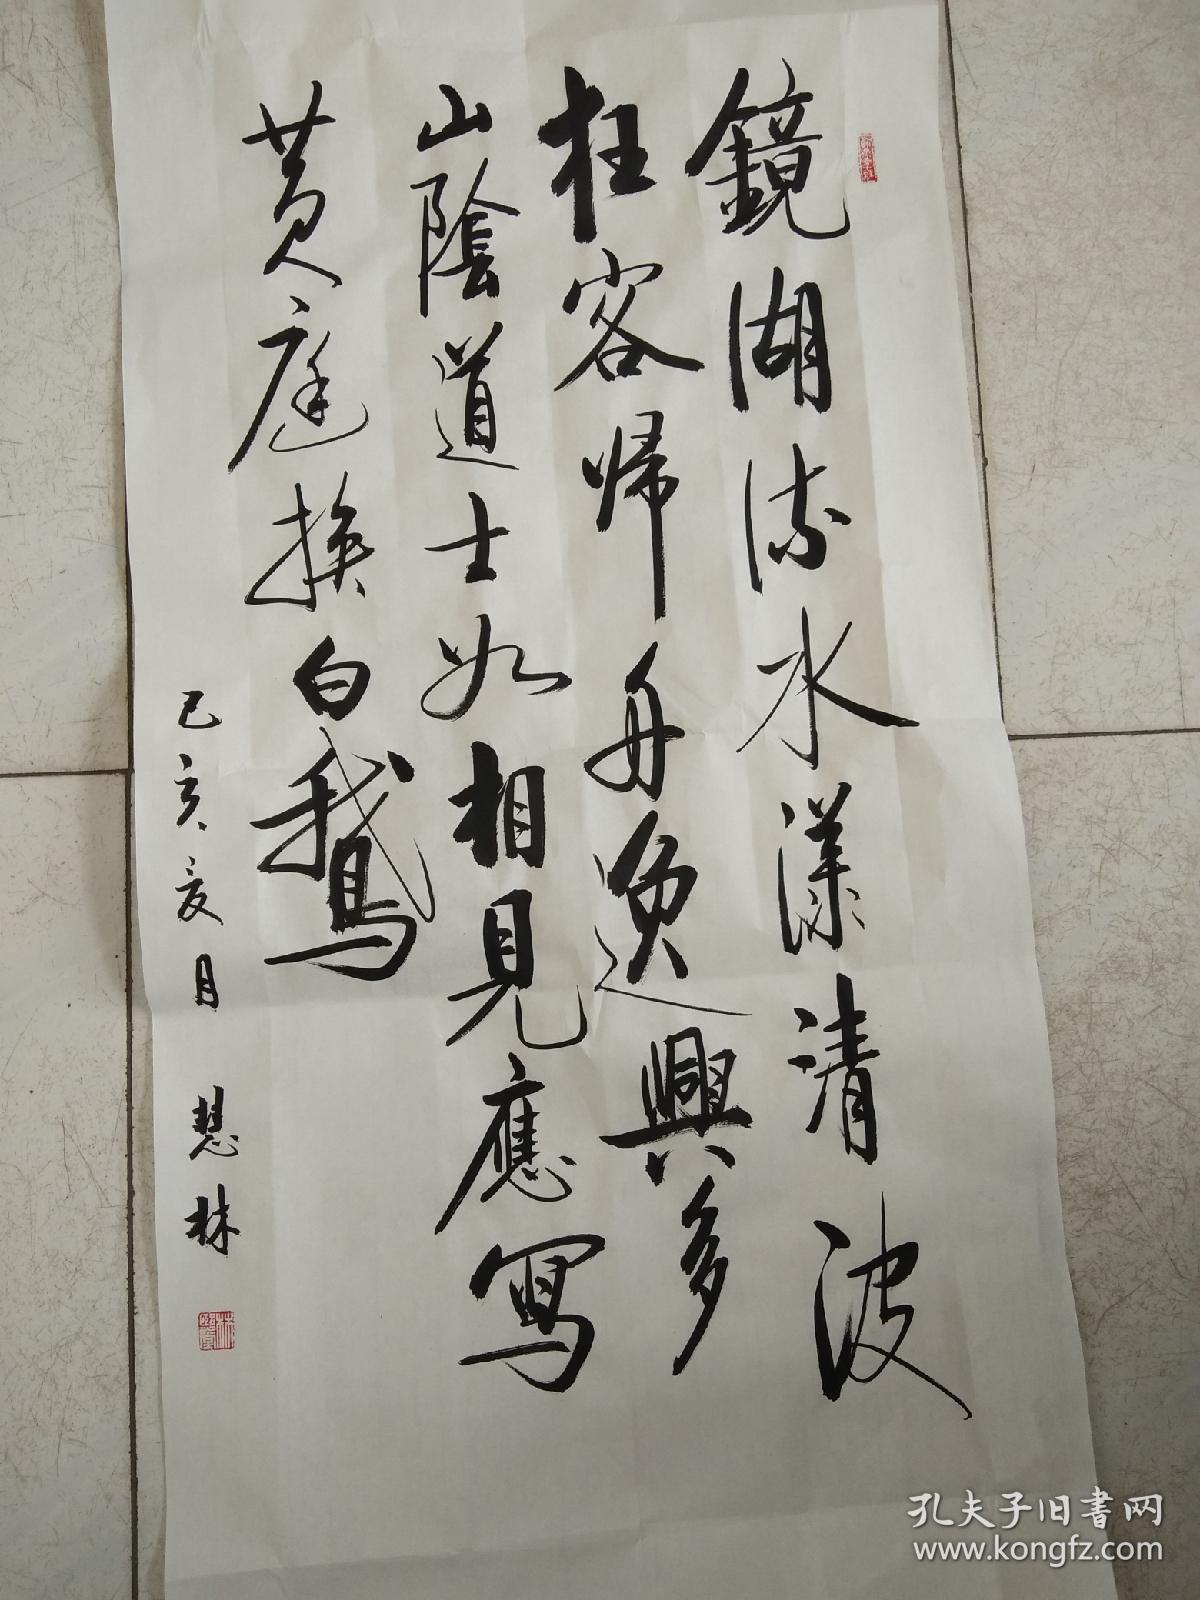 鏡湖流水漾清波
狂客歸舟逸興多
山陰道士如相見應寫
黃庭換白鵝
己亥夏月 慧林
孔夫子旧书网
www.kongfz.com